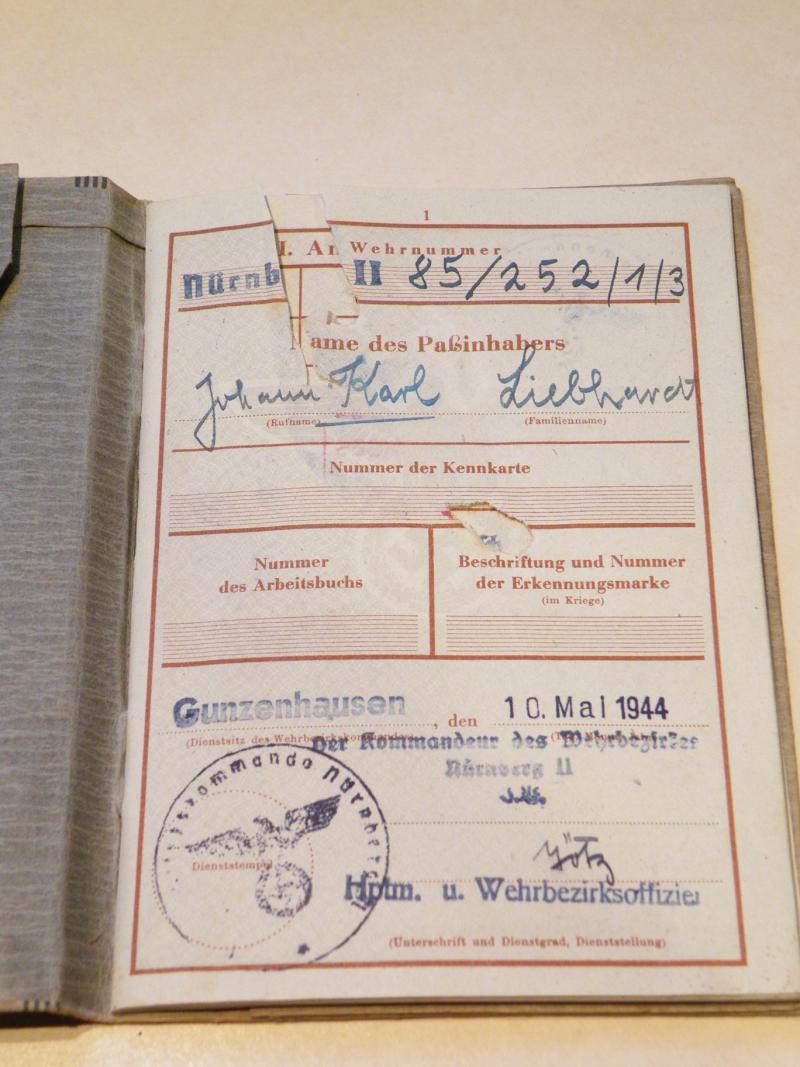 1
I. An Wehrnummer
Nürnb II 85/252/1/3
ame des Paßinhabers
Johann Karl Liebhardt
(Rufname) (Familienname)
Nummer der Kennkarte
Nummer des Arbeitsbuchs
Beschriftung und Nummer der Erkennungsmarke
(im Kriege)
Gunzenhausen, den 10. Mai 1944
(Dienstsitz des Wehrbezirkskommandos)
Der Kommandeur des Wehrbezirkes
Nürnberg II
J.A.
Götz
Dienststempel
kommando Nürnberg
Hptm. u. Wehrbezirksoffizier
(Unterschrift und Dienstgrad, Dienststellung)